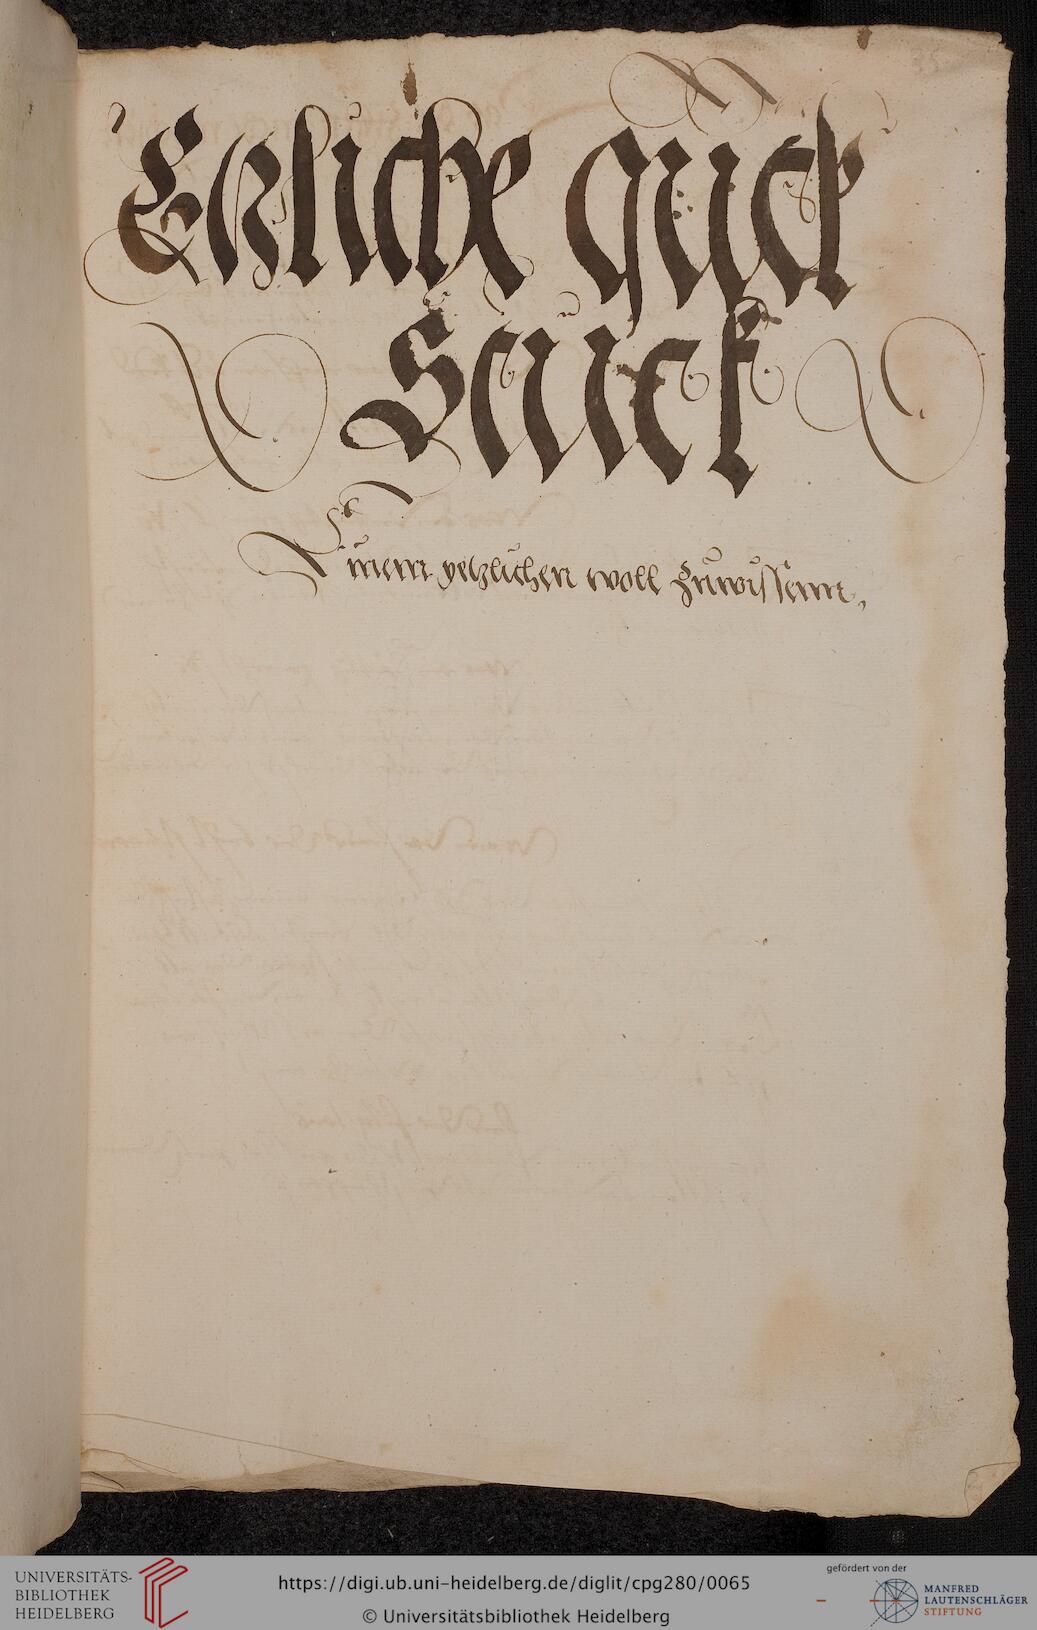 Etzliche guck
Stuck
Einem yetzlichen woll zuwissenn,
UNIVERSITÄTS-
BIBLIOTHEK
HEIDELBERG
https://digi.ub.uni-heidelberg.de/diglit/cpg280/0065
© Universitätsbibliothek Heidelberg
gefördert von der
MANFRED
LAUTENSCHLÄGER
STIFTUNG